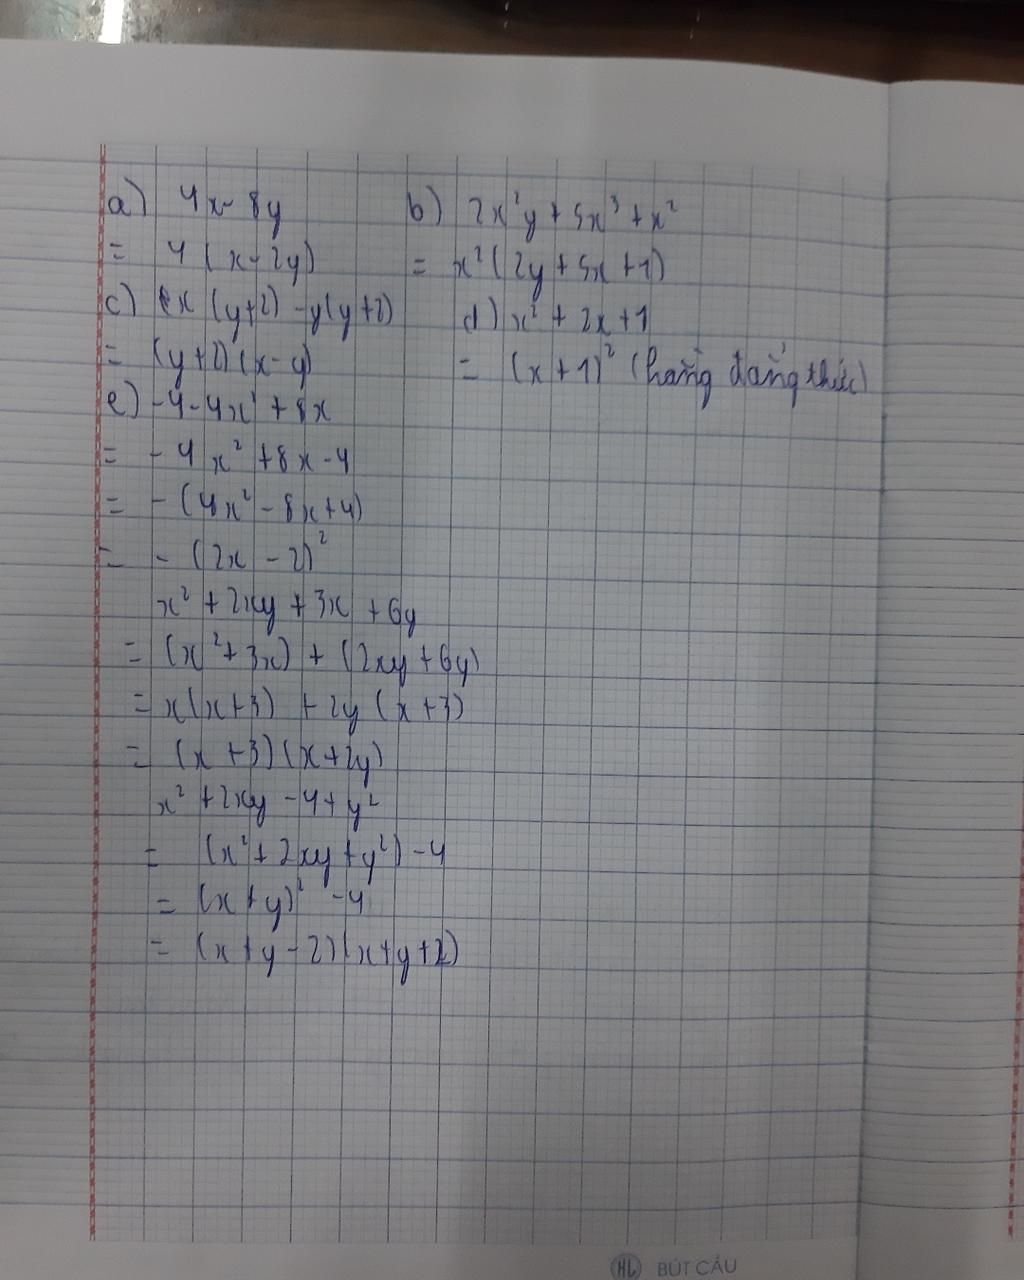 a) 4x - 8y b) 2x²y + 5x³ + x²
= 4 (x - 2y) = x² (2y + 5x + 1)
c) x (y+2) - y(y+2) d) x² + 2x + 1
= (y+2) (x-y) = (x + 1)² (hằng đẳng thức)
e) -4 - 4x² + 8x
= - 4x² + 8x - 4
= - (4x² - 8x + 4)
= - (2x - 2)²
x² + 2xy + 3x + 6y
= (x² + 3x) + (2xy + 6y)
= x(x+3) + 2y (x+3)
= (x + 3) (x + 2y)
x² + 2xy - 4 + y²
= (x² + 2xy + y²) - 4
= (x + y)² - 4
= (x + y - 2) (x + y + 2)
HL BÚT CẨU